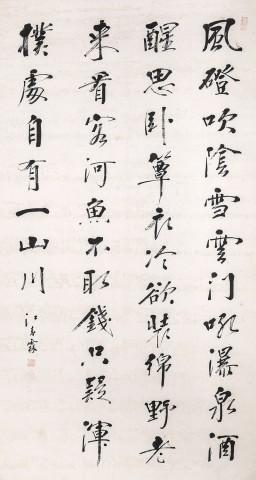 風磴吹陰雪雲门吼瀑泉酒
醒思卧簟衣冷欲裝綿野老
來看客河魚不取錢只疑渾
樸處自有一山川
江春霖